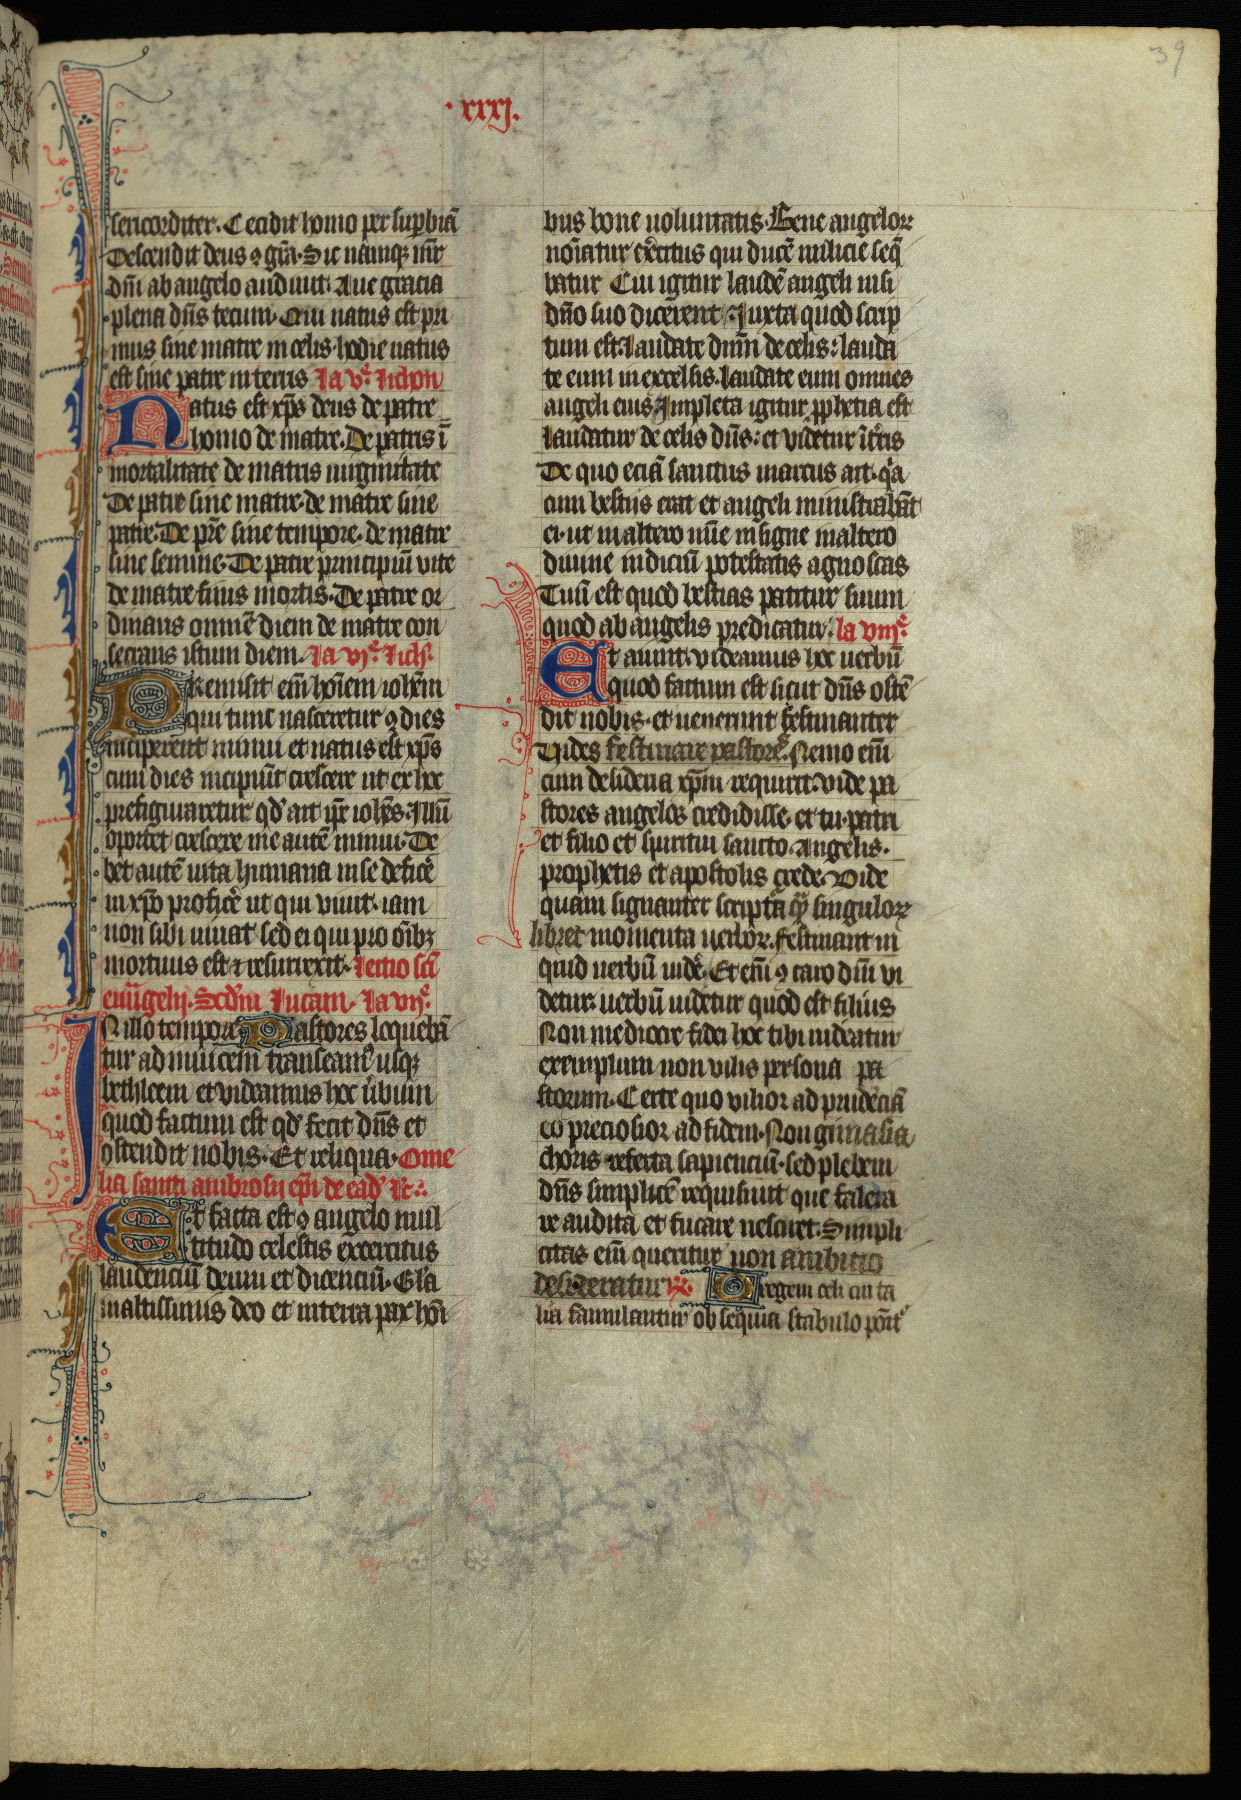 39
· xxxj.
sericorditer. Cecidit homo per supbiā
Descendit deus ꝯ grā. Sic namqꝫ nr̄
dn̄i ab angelo audiuit. Aue gracia
plena dn̄s tecum. Qui natus est pri
mus sine matre in celis. hodie natus
est sine patre in terris
Natus est xp̄s deus de patre
homo de matre. De patris ī
mortalitate de matris uirginitate
De patre sine matre. de matre sine
patre. De pr̄e sine tempore. de matre
sine semine. De patre principiū vite
de matre finis mortis. De patre or
dinans omnē diem de matre con
secrans istum diem.
PRemisit em̄ hōiem iohēm
qui tunc nasceretur ꝯ dies
inciperent minui et natus est xp̄s
cum dies incipiūt crescere ut ex hoc
prefiguraretur qd̓ ait ip̄e iohēs. Illū
oportet crescere me autē minui. De
bet autē uita humana in se deficē
in xp̄o proficē ut qui viuit. iam
non sibi uiuat sed ei qui pro oīb;
mortuus est ⁊ resurrexit. lectio sc̄i
euūgelij. Scd̓m lucam. la vijᵉ.
IN illo tempore Pastores loquebā
tur ad inuicem transeamꝰ usqꝫ
bethleem et videamus hoc ūbum
quod factum est qd̓ fecit dn̄s et
ostendit nobis. Et reliqua. Ome
lia sancti ambrosij ep̄i de ead̓
Et facta est ꝯ angelo mul
titudo celestis excercitus
laudenciū deum et dicenciū. Gl̄a
in altissimis deo et in terra pax hōi
bus bone uoluntatis. Bene angeloꝝ
noīatur exc̄itus qui ducē milicie seq̄
batur Cui igitur laudē angeli nisi
dn̄o suo dicerent. Iuxta quod scrip
tum est. laudate dn̄m de celis: lauda
te eum in excelsis. laudate eum omnes
angeli eius. Impleta igitur p̄phetia est
laudatur de celis dn̄s: et videtur ī tr̄is
De quo eciā sanctus marcus ait. q̓a
cum bestijs erat et angeli ministrabāt
ei. ut in altero m̄ie insigne in altero
diuine indiciū potestatis agnoscas
Tuū est quod bestias patitur suum
quod ab angelis predicatur. la viijᵉ.
Et aiunt. videamus hoc uerbū
quod factum est sicut dn̄s ostē
dit nobis. et uenerunt festinanter
Vides festinare pastores. Nemo em̄
cum desidia xp̄m requirit. vide pa
stores angelos credidisse. et tu patri
et filio et spiritui sancto. Angelis.
prophetis et apostolis crede. Vide
quam signanter scriptura singuloꝝ
libret momenta uerboꝝ. festinant in
quid uerbū uidē. Et em̄ ꝯ caro dn̄i vi
detur: uerbū uidetur quod est filius
Non mediocre fidei hoc tibi uideatur
exemplum non vilis persona pa
storum. Certe quo vilior ad prudēciā
eo preciosior ad fidem. Non gimasia
choris referta sapienciū. sed plebem
dn̄s simplicē requisiuit que falera
re audita et fucare nesciret. Simpli
citas em̄ queritur non ambitio
desideratur O regem celi cui ta
lia famulantur obsequia stabulo ponit